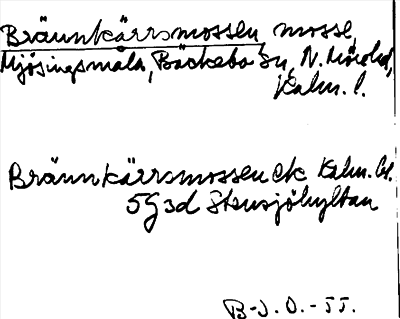 Bräunkärrsmossen mosse,
Mjösingsmåla, Bäckebo sn, N. Möre hd,
Kalm. l.
Bräunkärrsmossen ek Kalm. bl.
5G 3d Stensjöhyltan
B-J. O. - JJ.